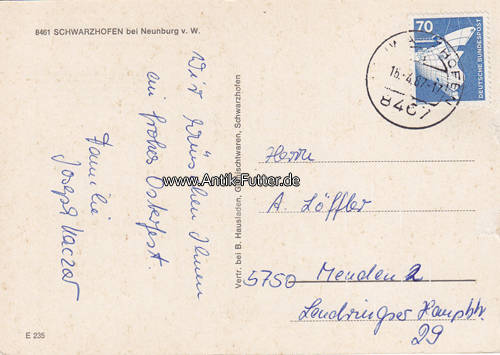 8461 SCHWARZHOFEN bei Neunburg v. W.
Wir wünschen Ihnen
ein frohes Osterfest.
Familie
Joseph
Vertr. bei B. Hausladen, Gemischtwaren, Schwarzhofen
E 235
70
DEUTSCHE BUNDESPOST
HOFEN
16.-4.87-17
8461
www.Antik-Futter.de
Herrn
A. Löffler
5750 Menden 2
Lendringser Hauptstr.
29